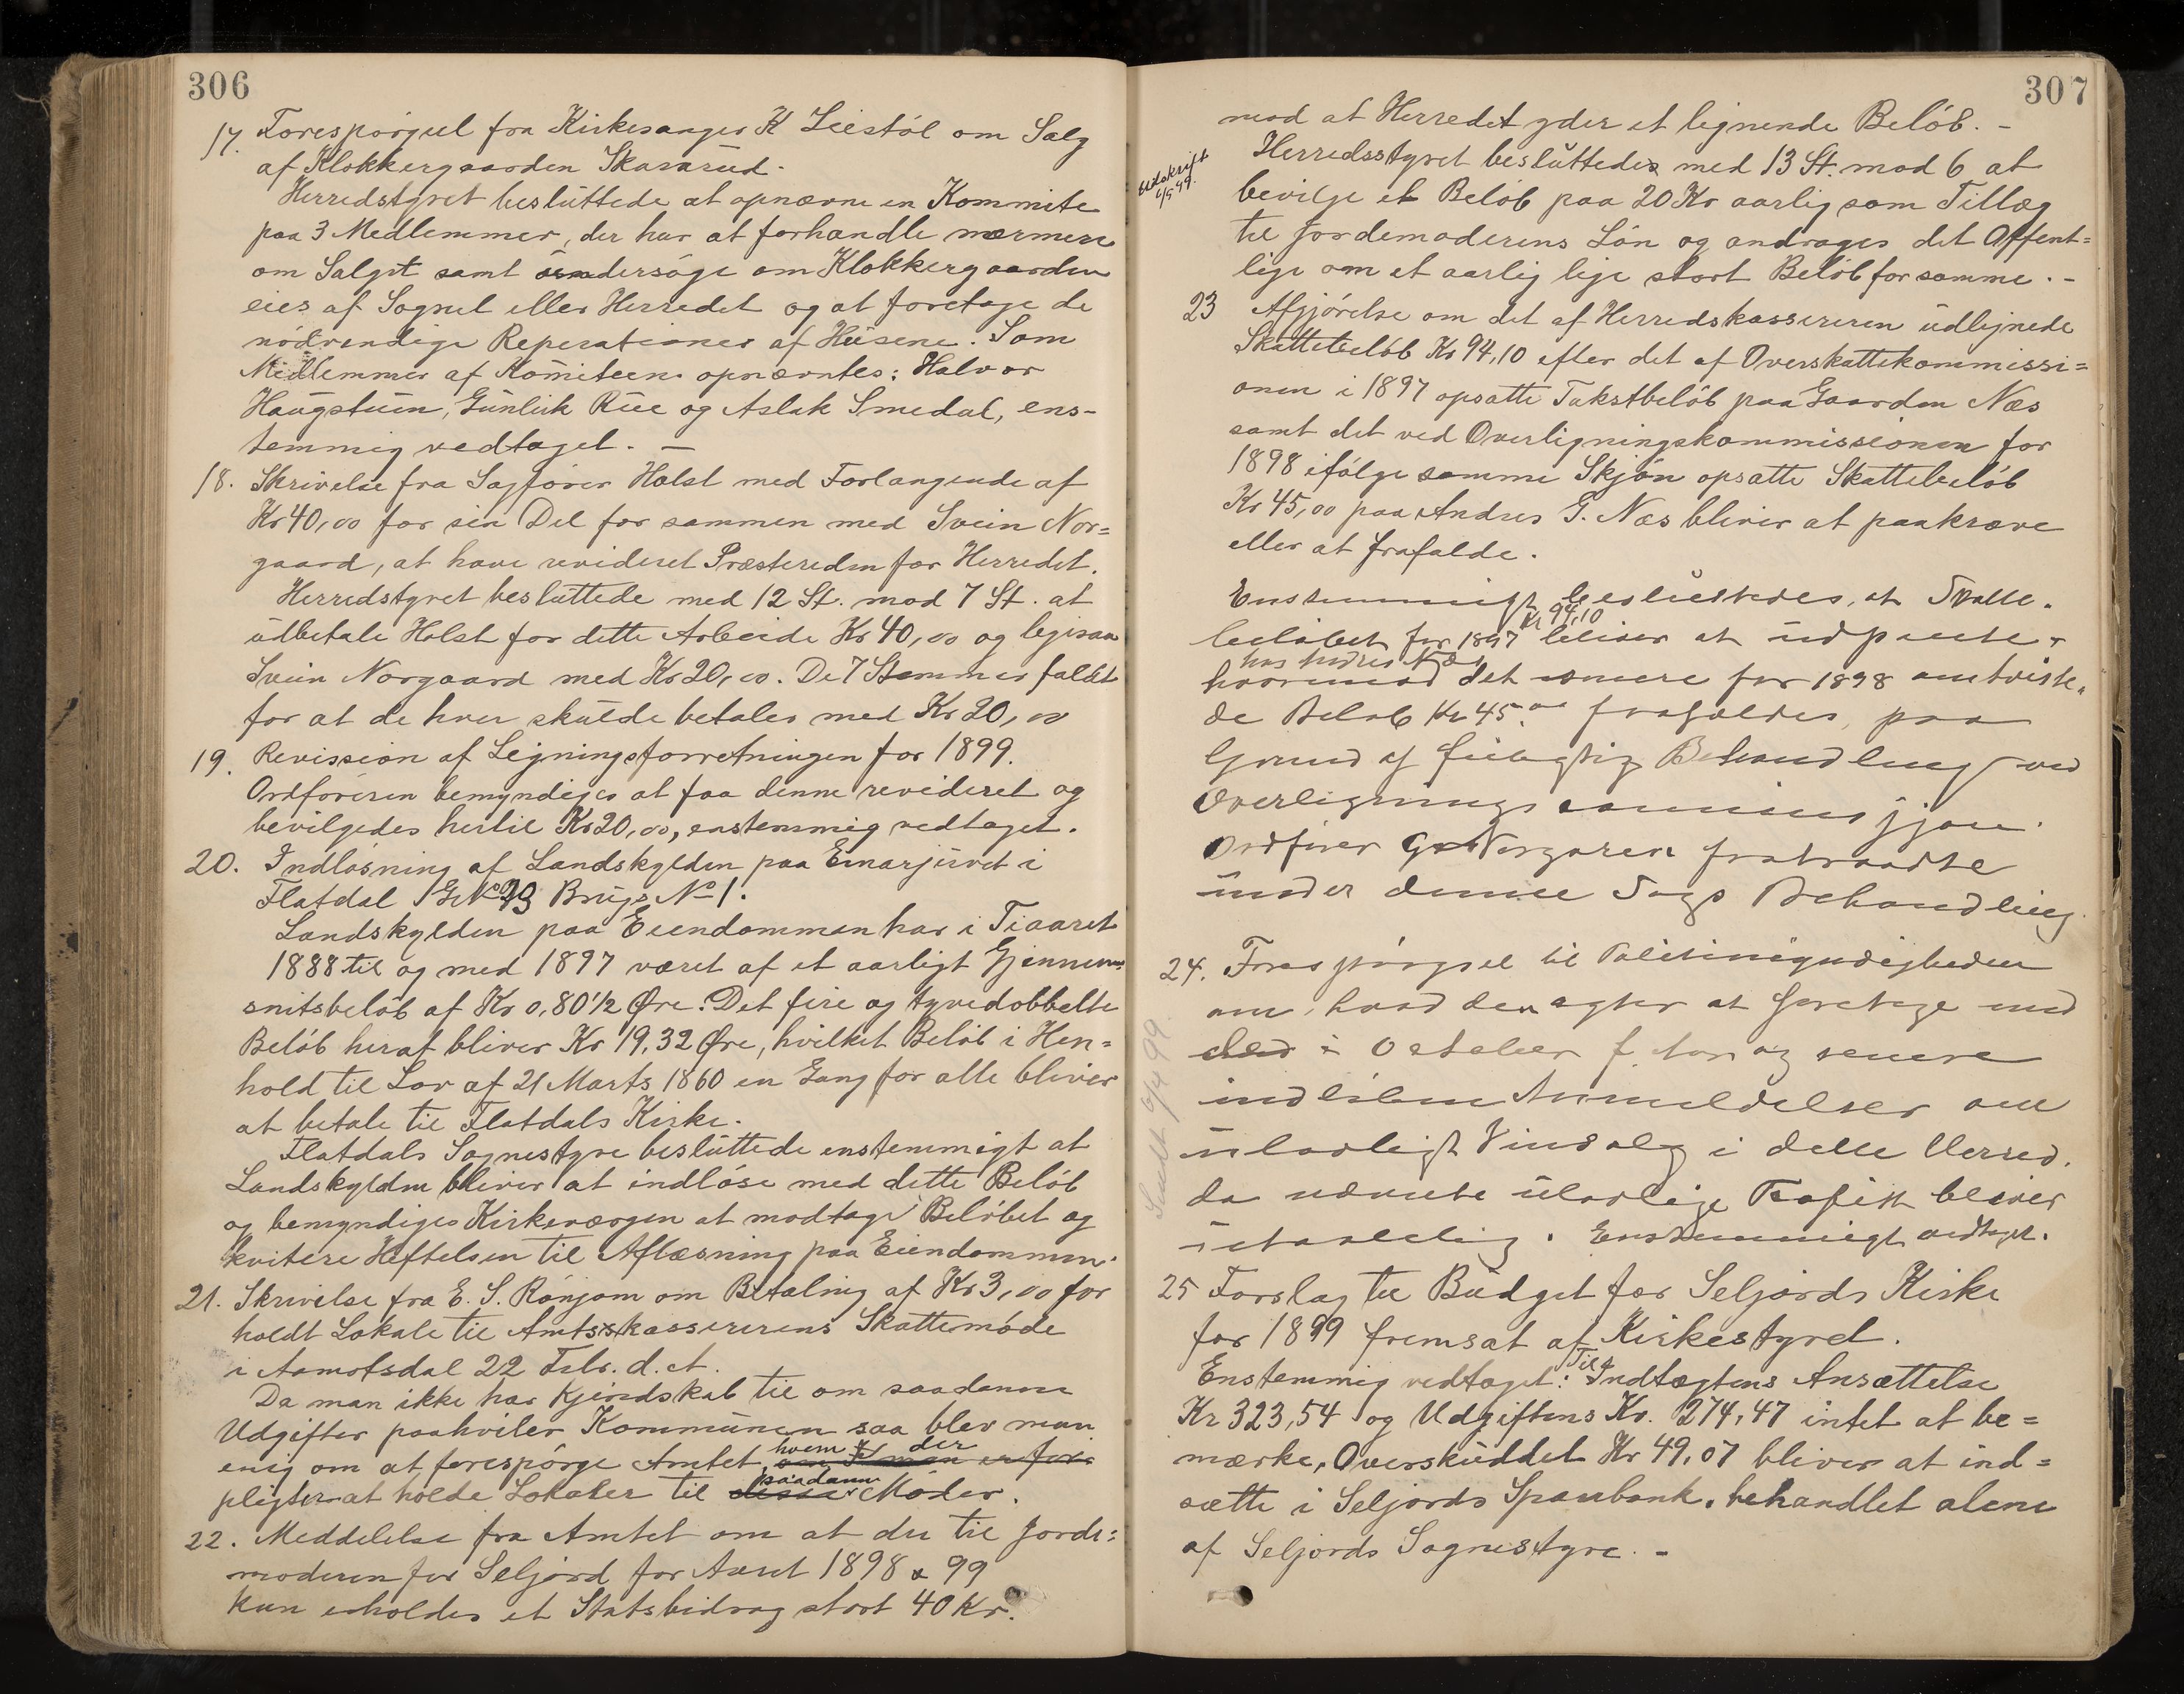 306
17. Forespörgsel fra Kirkesanger K Liestöl om Salg
af Klokkergaarden Skararud.
Herredstyret besluttede at opnævne en Kommite
paa 3 Medlemmer, der har at forhandle nærmere
om Salget samt undersöge om Klokkergaarden
eies af Sognet eller Herredet og at foretage de
nödvendige Reperationer af Husene. Som
Medlemmer af Komiteen opnævntes: Halvor
Haugstuen, Gunleik Rue og Aslak Smedal, ens-
temmig vedtaget. —
18. Skrivelse fra Sagförer Holst med Forlangende af
Kr 40,00 for sin Del for sammen med Svein Nor=
gaard, at have revideret Præstereden for Herredet.
Herredstyret besluttede med 12 St. mod 7 St. at
udbetale Holst for dette Arbeide Kr 40,00 og ligesaa
Svein Norgaard med Kr 20,00. De 7 Stemmer faldt
for at de hver skulde betales med Kr 20,00
19. Revission af Ligningsforretningen for 1899.
Ordföreren bemyndiges at faa denne revideret og
bevilgedes hertil Kr 20,00, enstemmig vedtaget.
20. Indlösning af Landskylden paa Einarjuvet i
Flatdal GNo 93 Brugs No 1.
Landskylden paa Eiendommen har i Tiaaret
1888 til og med 1897 været af et aarligt Gjennem
snitsbelöb af Kr 0,80 1/2 Øre. Det fire og tyvedobbelte
Belöb heraf bliver Kr 19,32 Øre, hvilket Belöb i Hen=
hold til Lov af 21 Marts 1860 en Gang for alle bliver
at betale til Flatdals Kirke.
Flatdals Sognestyre besluttede enstemmigt at
Landskylden bliver at indlöse med dette Belöb
og bemyndiges Kirkeværgen at modtage Belöbet og
kvitere Heftelsen til Aflæsning paa Eiendommen.
21. Skrivelse fra E. S. Rönjom om Betaling af Kr 3,00 for
holdt Lokale til Amtskassererens Skattemöde
i Aamotsdal 22 Febr. d. A.
Da man ikke har Kjendskab til om saadanne
Udgifter paahviler Kommunen saa blev man
hvem der
enig om at forespörge Amtet er for-
saadanne
pligter at holde Lokaler til disse Möder.
22. Meddelelse fra Amtet om at der til Jorde=
moderen for Seljord for Aaret 1898 & 99
kun erholdes et Statsbidrag stort 40 Kr.
307
mod at Herredet yder et lignende Belöb. -
Udskrift
6/5 99.
Herredsstyret besluttedes med 13 St. mod 6 at
bevilge et Belöb paa 20 Kr aarlig som Tillæg
til Jordemoderens Lön og andrages det Offent=
lige om et aarlig lige stort Belöb for samme. -
23 Afgjörelse om det af Herredskassereren udlignede
Skattebelöb Kr 94,10 efter det af Overskattekommissi=
onen i 1897 opsatte Takstbelöb paa Gaarden Næs
samt det ved Overligningskommissionen for
1898 ifölge samme Skjön opsatte Skattebelöb
Kr 45,00 paa Andres G. Næs bliver at paakræve
eller at frafalde.
Enstemmigt besluttedes, at Skatte-
Kr 94,10
belöbet for 1897 bliver at udpante
hos Andres Næs
hvorimod det senere for 1898 omtviste-
de Belöb Kr 45.00 frafaldes, paa
Grund af feilagtig Behandling ved
Overligningscommissjon.
Ordförer Norgaren fratraadte
under denne Sags Behandling.
24. Forespörgsel til Politimyndigheden
om, hvad den agter at foretage med
i October f. Aar og senere
indlöbne Anmeldelser om
ulovligt Vinsalg i dette Herred.
da nævnte ulovlige Trafikk bliver
utaalelig. Enstemmigt vedtaget.
Sendt 9/4 99.
25 Forslag til Budget for Seljords Kirke
for 1899 fremsat af Kirkestyret.
Til
Enstemmig vedtaget: Indtægtens Ansættelse
Kr 323,54 og Udgiftens Kr. 274,47 intet at be=
mærke, Overskuddet Kr 49,07 bliver at ind=
sætte i Seljords Sparebank. behandlet alene
af Seljords Sognestyre. -